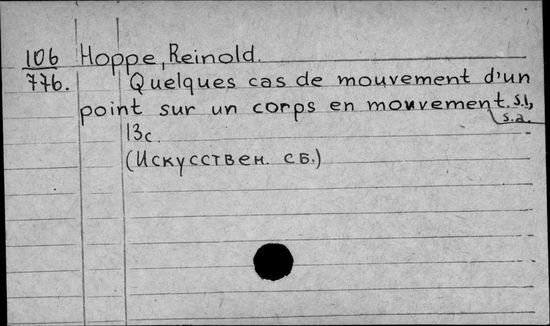 106 Hoppe, Reinold.
776. Quelques cas de mouvement d'un
point sur un corps en mouvement. s.l,
s.a.
13с.
(Искусствен. сб.)